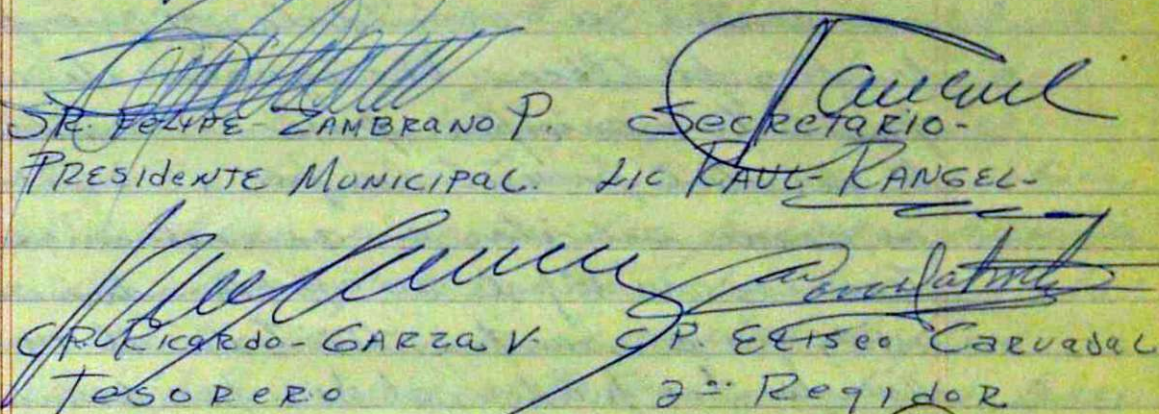 SR. FELIPE-ZAMBRANO P. Secretario-
PRESIDENTE MUNICIPAL. LIC RAUL-RANGEL-
CP. Ricardo-GARZA V. CP. ELISEO CARVAJAL
TESORERO 2º Regidor